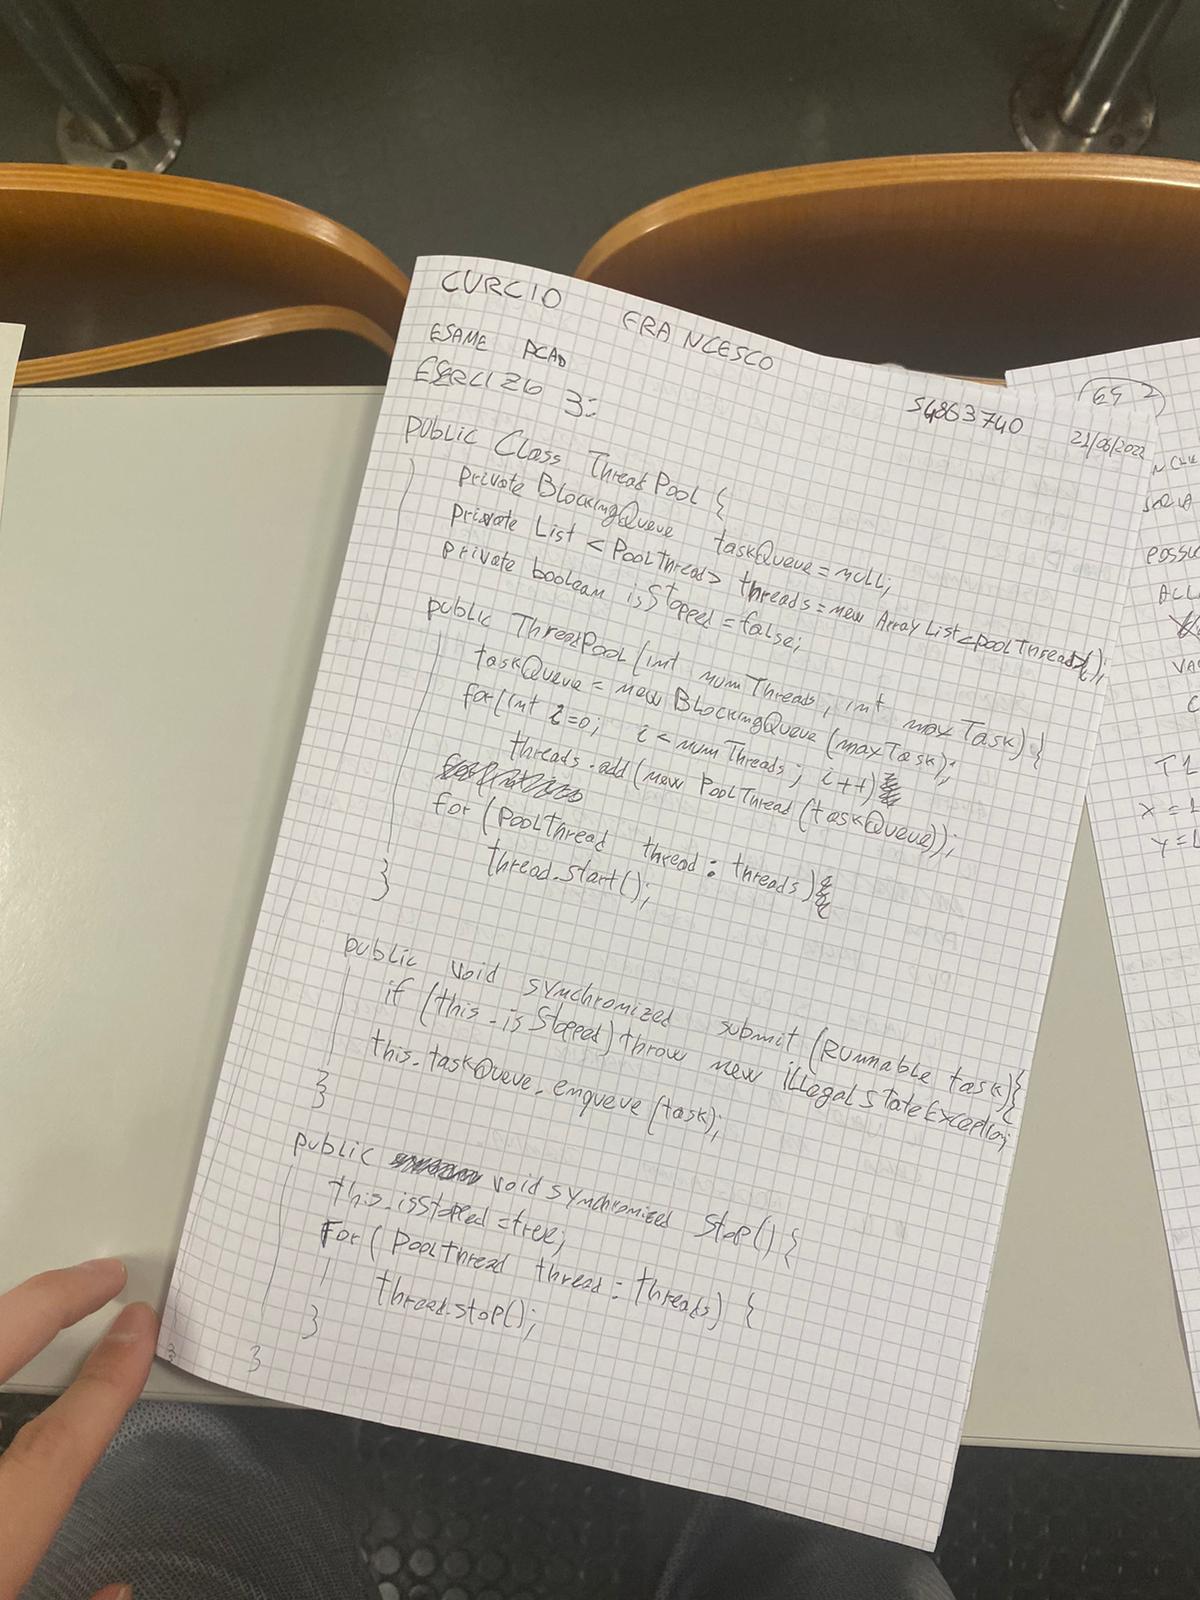 CURCIO FRANCESCO
S4863740
ESAME PCAD
21/06/2022
ESERCIZIO 3:
public Class ThreadPool {
private BlockingQueue taskQueue = null;
private List <PoolThread> threads = new ArrayList<PoolThread>();
private boolean isStopped = false;
public ThreadPool (int numThreads, int maxTask) {
taskQueue = new BlockingQueue (maxTask);
for (int i=0; i < numThreads; i++)
threads.add (new PoolThread (taskQueue));
for (PoolThread thread : threads)
thread.start();
}
public void synchronized submit (Runnable task) {
if (this.isStopped) throw new illegalStateException;
this.taskQueue.enqueue (task);
}
public void synchronized stop() {
this.isStopped = true;
For (PoolThread thread : threads) {
thread.stop();
}
}
}
T1